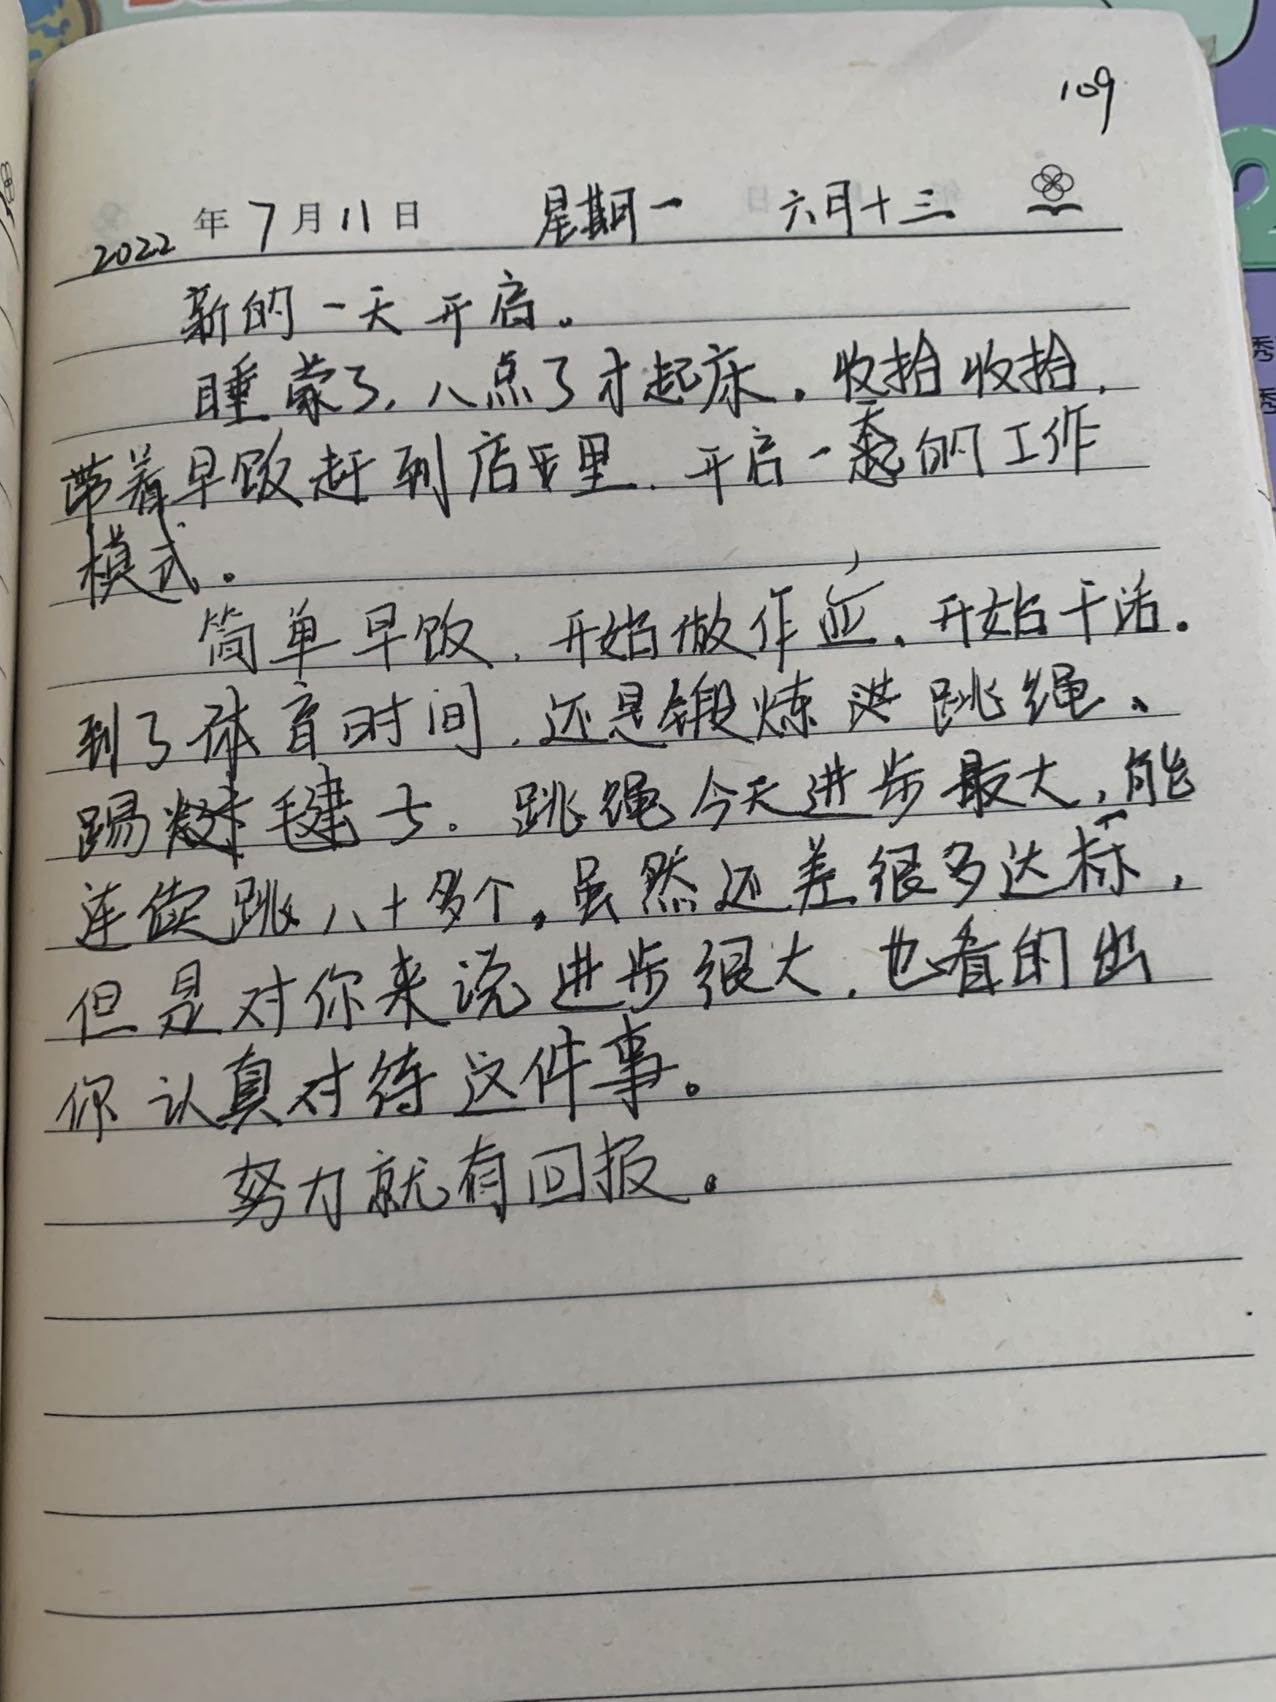 109
2022 年 7 月 11 日 星期一 六月十三
新的一天开启。
睡蒙了,八点了才起床。收拾收拾,
带着早饭赶到店里,开启一天的工作
模式。
简单早饭,开始做作业、开始干活。
到了体育时间,还是锻炼 跳绳、
踢毽子。跳绳今天进步最大,能
连续跳八十多个。虽然还差很多达标,
但是对你来说进步很大,也看的出
你认真对待这件事。
努力就有回报。
2
秀
秀